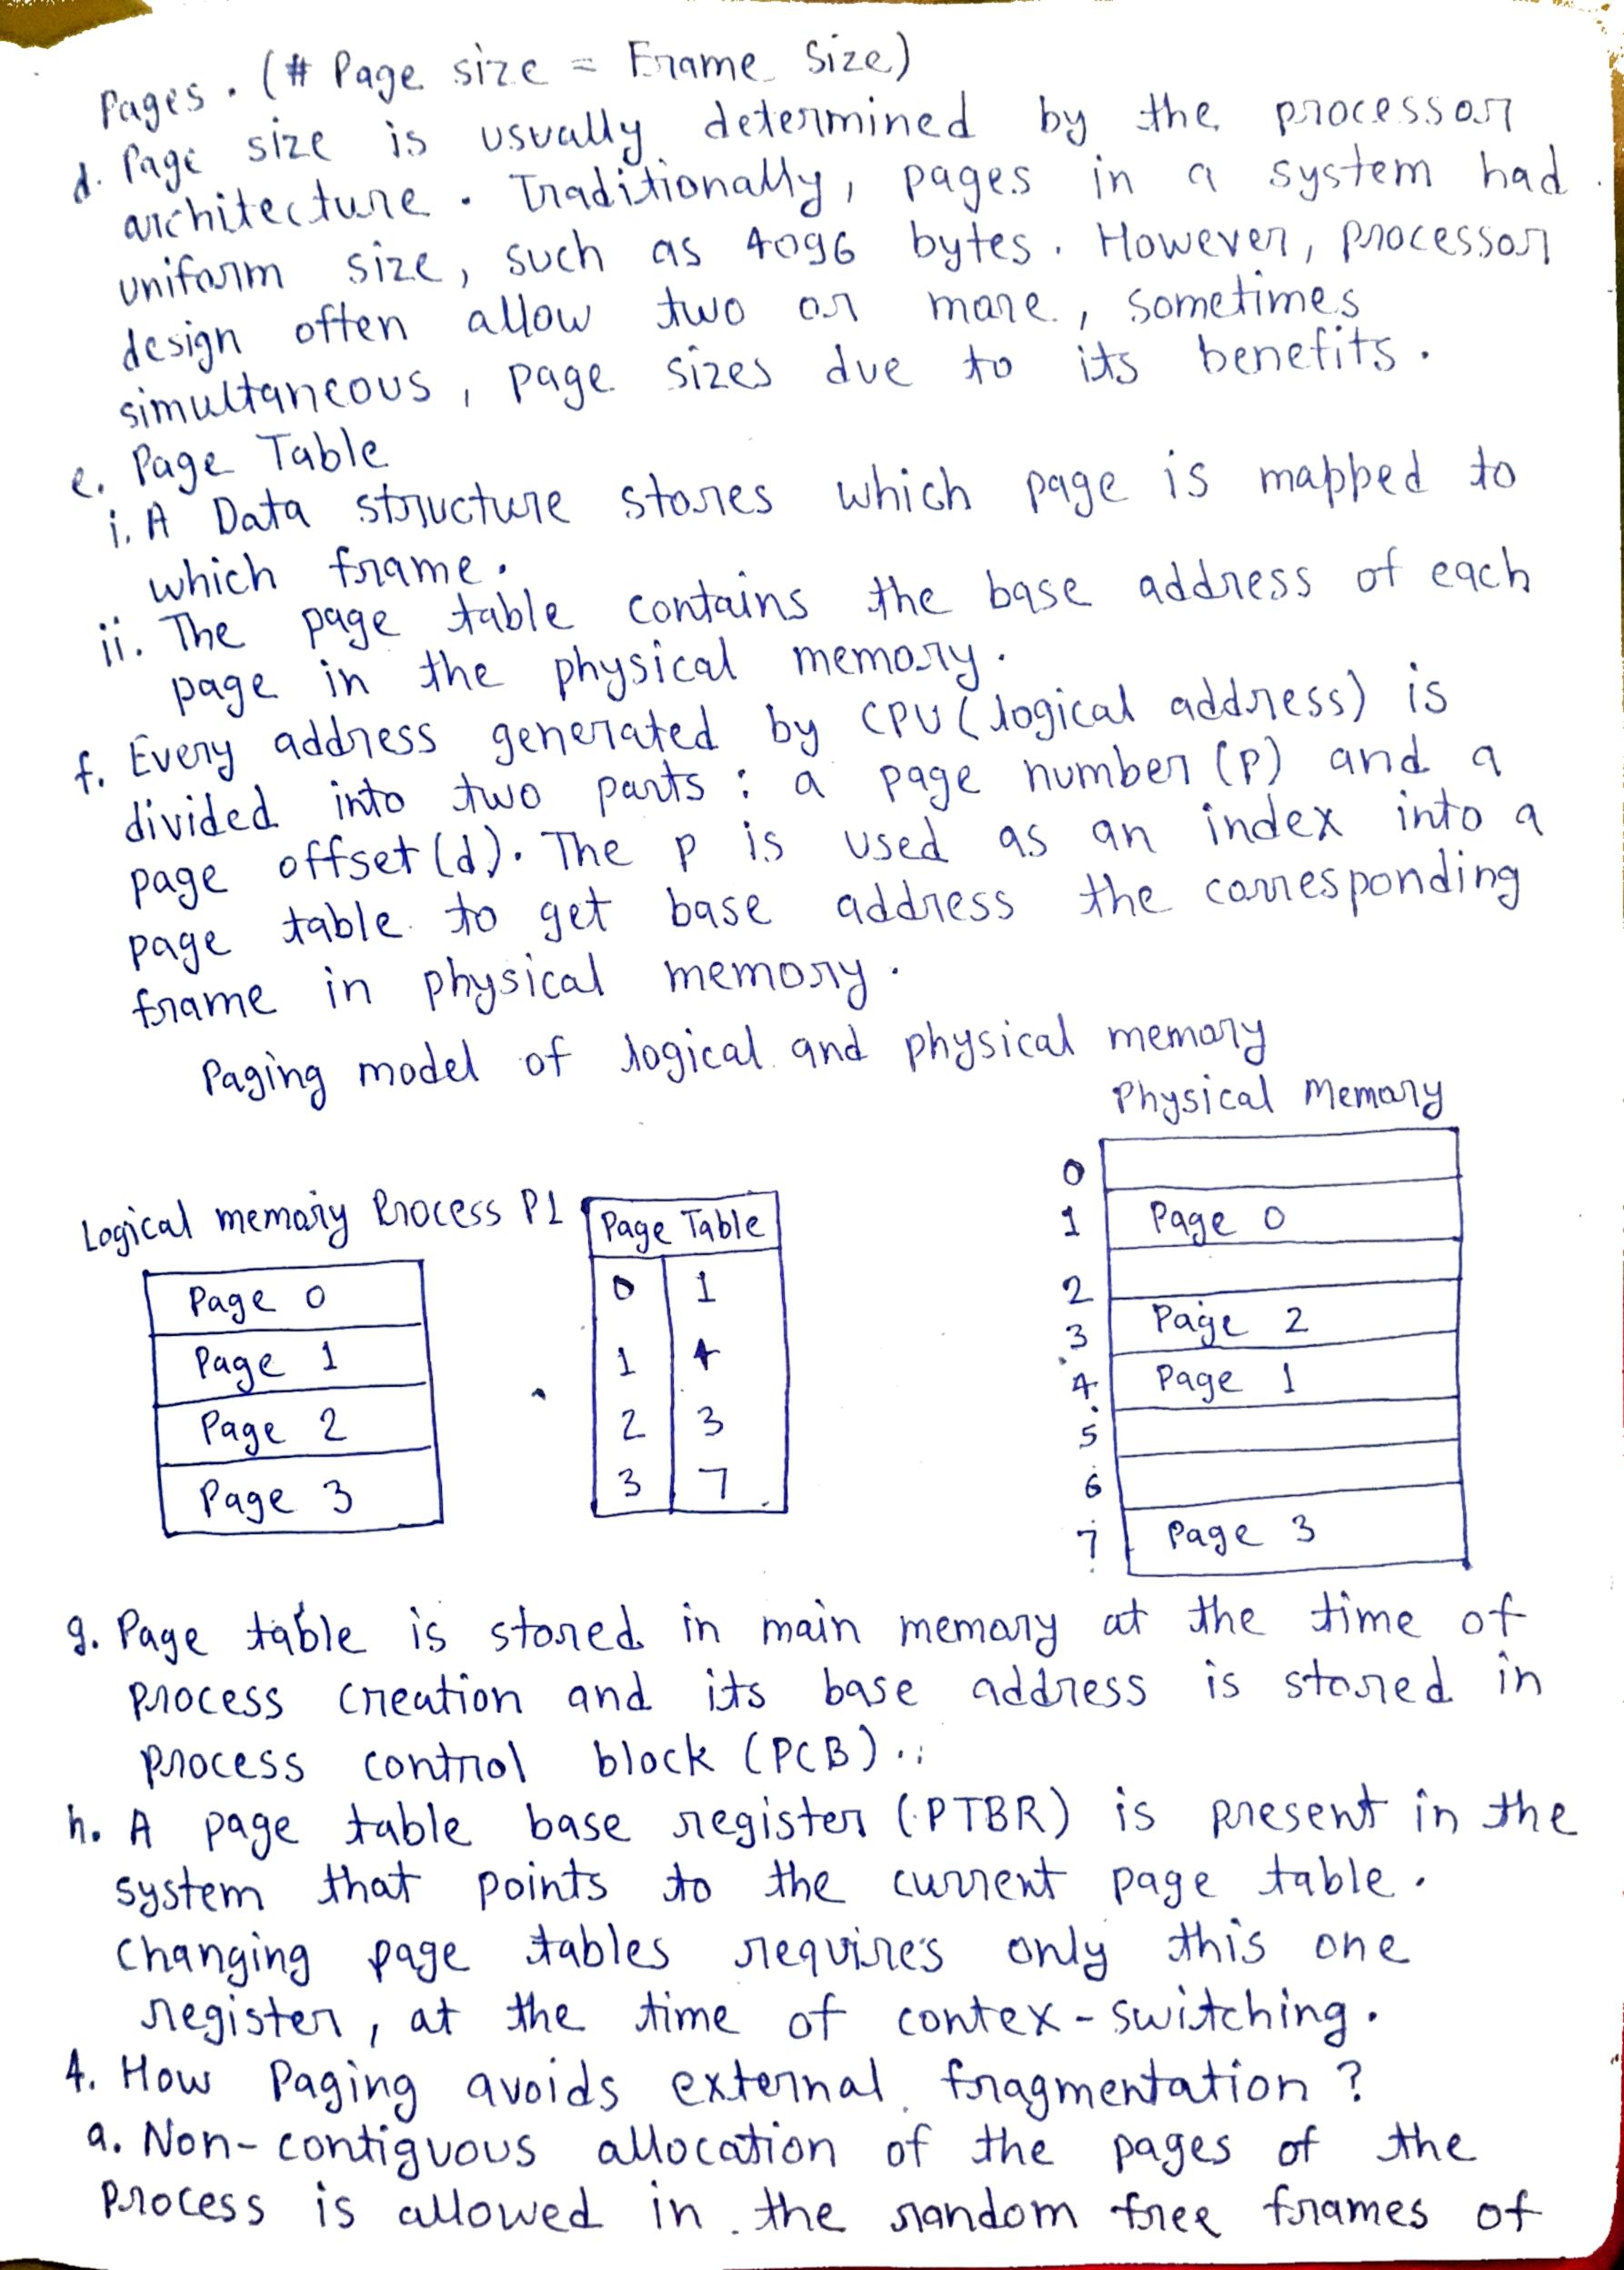 Pages. (# Page size = Frame Size)
d. Page size is usually determined by the processor
architecture. Traditionally, pages in a system had
uniform size, such as 4096 bytes. However, processor
design often allow two or more, sometimes
simultaneous, page sizes due to its benefits.
e. Page Table
i. A Data structure stores which page is mapped to
which frame.
ii. The page table contains the base address of each
page in the physical memory.
f. Every address generated by CPU (logical address) is
divided into two parts: a page number (p) and a
page offset (d). The p is used as an index into a
page table to get base address the corresponding
frame in physical memory.
Paging model of logical and physical memory
Logical memory Process P1
Page 0
Page 1
Page 2
Page 3
Page Table
0 1
1 4
2 3
3 7
Physical Memory
0
1 Page 0
2
3 Page 2
4 Page 1
5
6
7 Page 3
g. Page table is stored in main memory at the time of
process creation and its base address is stored in
process control block (PCB).
h. A page table base register (PTBR) is present in the
system that points to the current page table.
Changing page tables requires only this one
register, at the time of contex-switching.
4. How Paging avoids external fragmentation?
a. Non-contiguous allocation of the pages of the
Process is allowed in the random free frames of